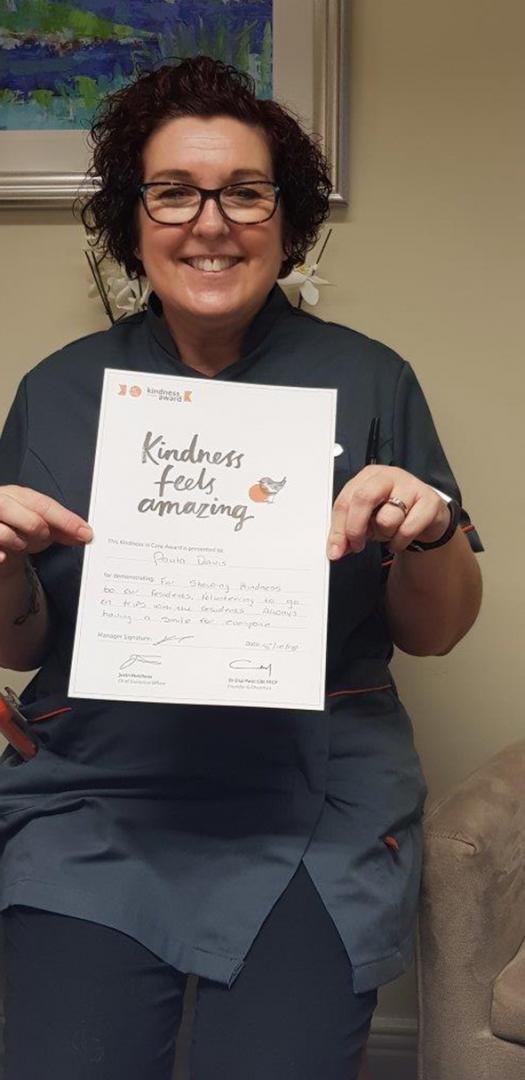 kindness
award
Kindness
feels
amazing
This Kindness in Care Award is presented to:
Paula Davis
for demonstrating: For Showing Kindness
to our residents, volunteering to go
on trips with the residents. Always
having a smile for everyone
Manager Signature:
Date:
Justin Hutchens
Chief Executive Officer
Dr Chai Patel CBE FRCP
Founder & Chairman